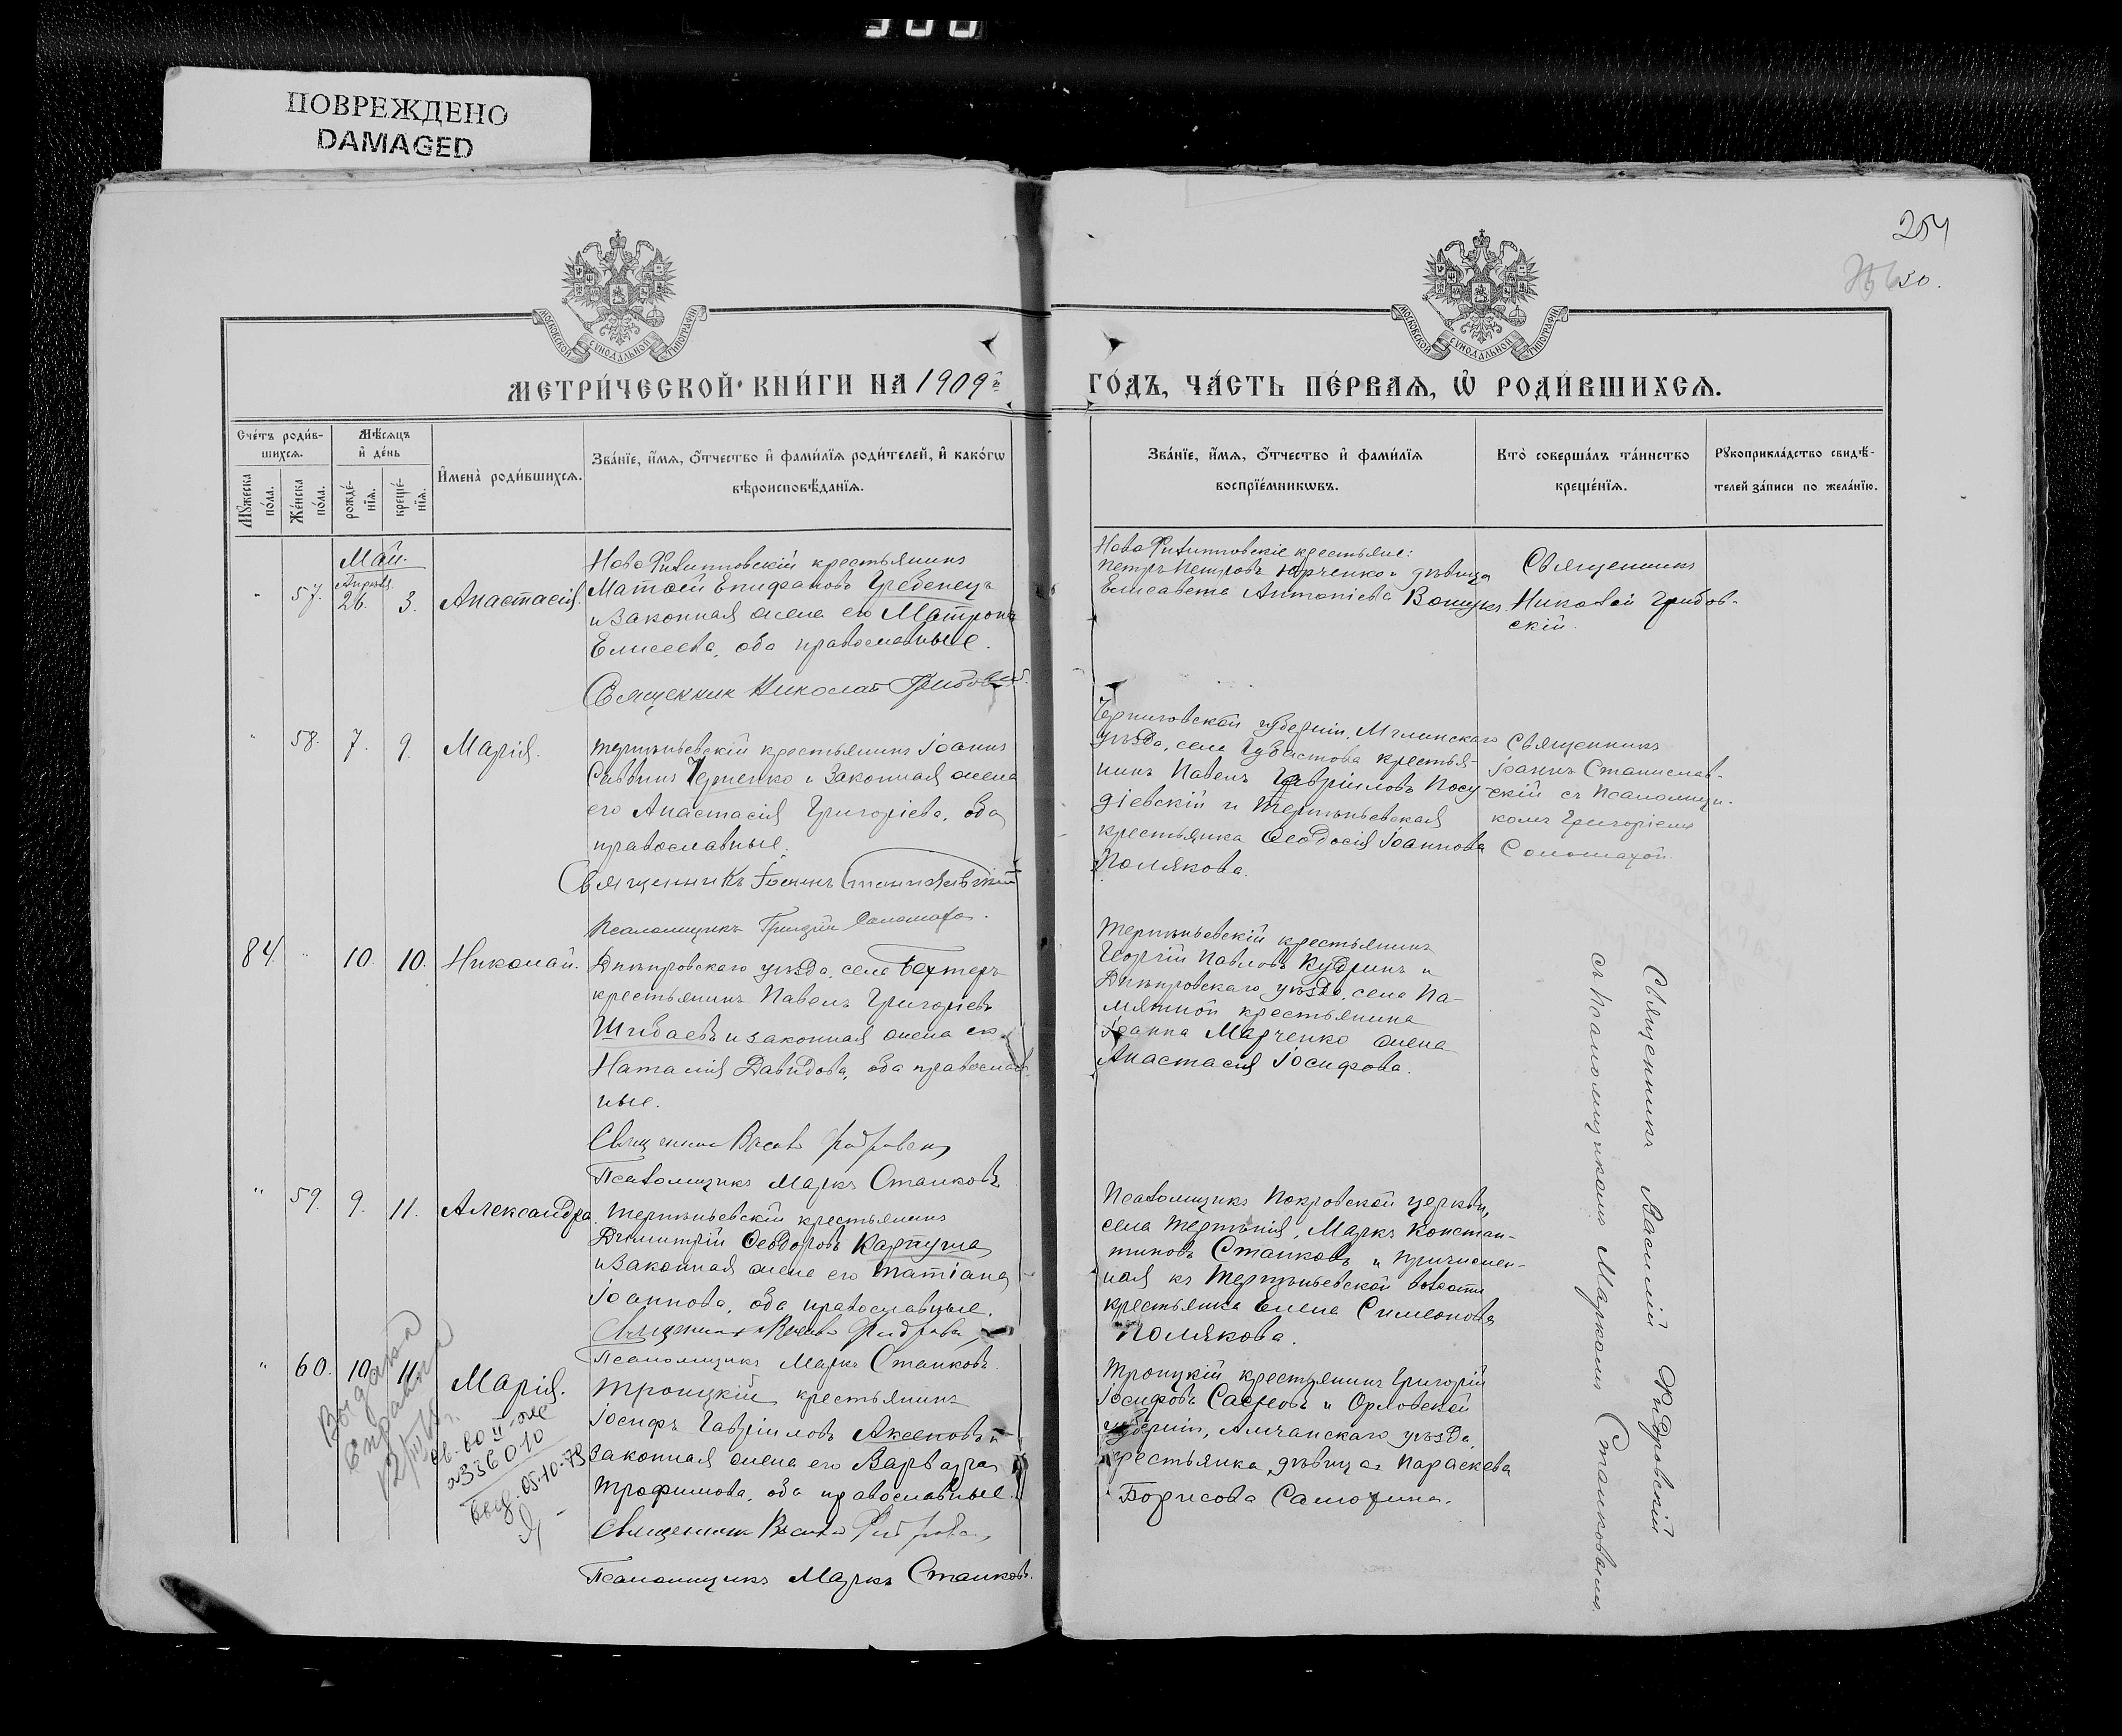 300
ПОВРЕЖДЕНО
DAMAGED
254
50.
МОСКОВСКОЙ СѴНОДАЛЬНОЙ ТИПОГРАФІИ
МОСКОВСКОЙ СѴНОДАЛЬНОЙ ТИПОГРАФІИ
МЕТРИ́ЧЕСКОЙ КНИ́ГИ НА 1909й
ГО́ДЪ, ЧА́СТЬ ПЕ́РВАѦ, Ѡ҆ РОДИ́ВШИХСѦ.
Сче́тъ роди́в-
шихсѧ.
Мꙋ́жеска по́ла.
Же́нска по́ла.
Мѣ́сѧцъ
и҆ де́нь
рожде́-
нїѧ.
креще́-
нїѧ.
И҆мена̀ роди́вшихсѧ.
Зва́нїе, и҆́мѧ, ѻ҆́тчество и҆ фами́лїѧ роди́телей, и҆ како́гѡ
вѣроисповѣ́данїѧ.
Зва́нїе, и҆́мѧ, ѻ҆́тчество и҆ фами́лїѧ
воспрїе́мникѡвъ.
Кто̀ соверша́лъ та́инство
креще́нїѧ.
Рꙋкоприкла́дство свидѣ́-
телей за́писи по жела́нїю.
Май.
" 57. Апрѣля 26. 3. Анастасія.
Ново Филипповскій крестьянинъ
Матѳей Епифановъ Гребенецъ
и законная жена его Матрона
Елисеева, оба православные.
Священник Николай Грибовскій.
Ново Филипповскіе крестьяне:
Петръ Петровъ Юрченко и дѣвица
Елисавета Антоніева Вощукъ.
Священникъ
Николай Грибов-
скій.
" 58. 7. 9. Марія.
Терпѣньевскій крестьянинъ Іоаннъ
Саввинъ Черненко и законная жена
его Анастасія Григоріева, оба
православные.
Священникъ Іоаннъ Станиславскій
Псаломщикъ Григорій Саломаха.
Черниговской губерніи, Мглинскаго
уѣзда, села крестья-
нинъ Павелъ Гавріиловъ Посу-
діевскій и Терпѣньевская
крестьянка Ѳеодосія Іоаннова
Полякова.
Священникъ
Іоаннъ Станислав-
скій съ псаломщи-
комъ Григоріемъ
Соломахой.
84. " 10. 10. Николай.
Днѣпровскаго уѣзда, села Бехтеръ
крестьянинъ Павелъ Григоріевъ
Шибаевъ и законная жена его
Наталія Давидова, оба православ-
ные.
Священник Васил Фидровскі
Псаломщикъ Маркъ Станковъ
Терпѣньевскій крестьянинъ
Георгій Павловъ Кудринъ и
Днѣпровскаго уѣзда, села Па-
мятной крестьянина
Іоанна Марченко жена
Анастасія Іосифова.
Священникъ Василій Фидровскій
съ псаломщикомъ Маркомъ Станковымъ.
" 59. 9. 11. Александра.
Терпѣньевскій крестьянинъ
Димитрій Ѳеодоровъ Карпуша
и законная жена его Татіана
Іоаннова, оба православные.
Священник Васил Фидровскі
Псаломщикъ Маркъ Станковъ.
Псаломщикъ Покровской церкви,
села Терпѣнія, Маркъ Констан-
тиновъ Станковъ и причислен-
ная къ Терпѣньевской волости
крестьянка Елена Симеонова
Полякова.
" 60. 10. 11. Марія.
Троицкій крестьянинъ
Іосифъ Гавріиловъ Аксеновъ и
законная жена его Варвара
Трофимова, оба православные.
Священник Васил Фидровс
Псаломщикъ Маркъ Станковъ.
Троицкій крестьянинъ Григорій
Іосифовъ и Орловской
губерніи, уѣзда,
крестьянка, дѣвица Параскева
Борисова Самохина.
Выдана
справка
св-во II-ое
№336010
выд. 05-10-79